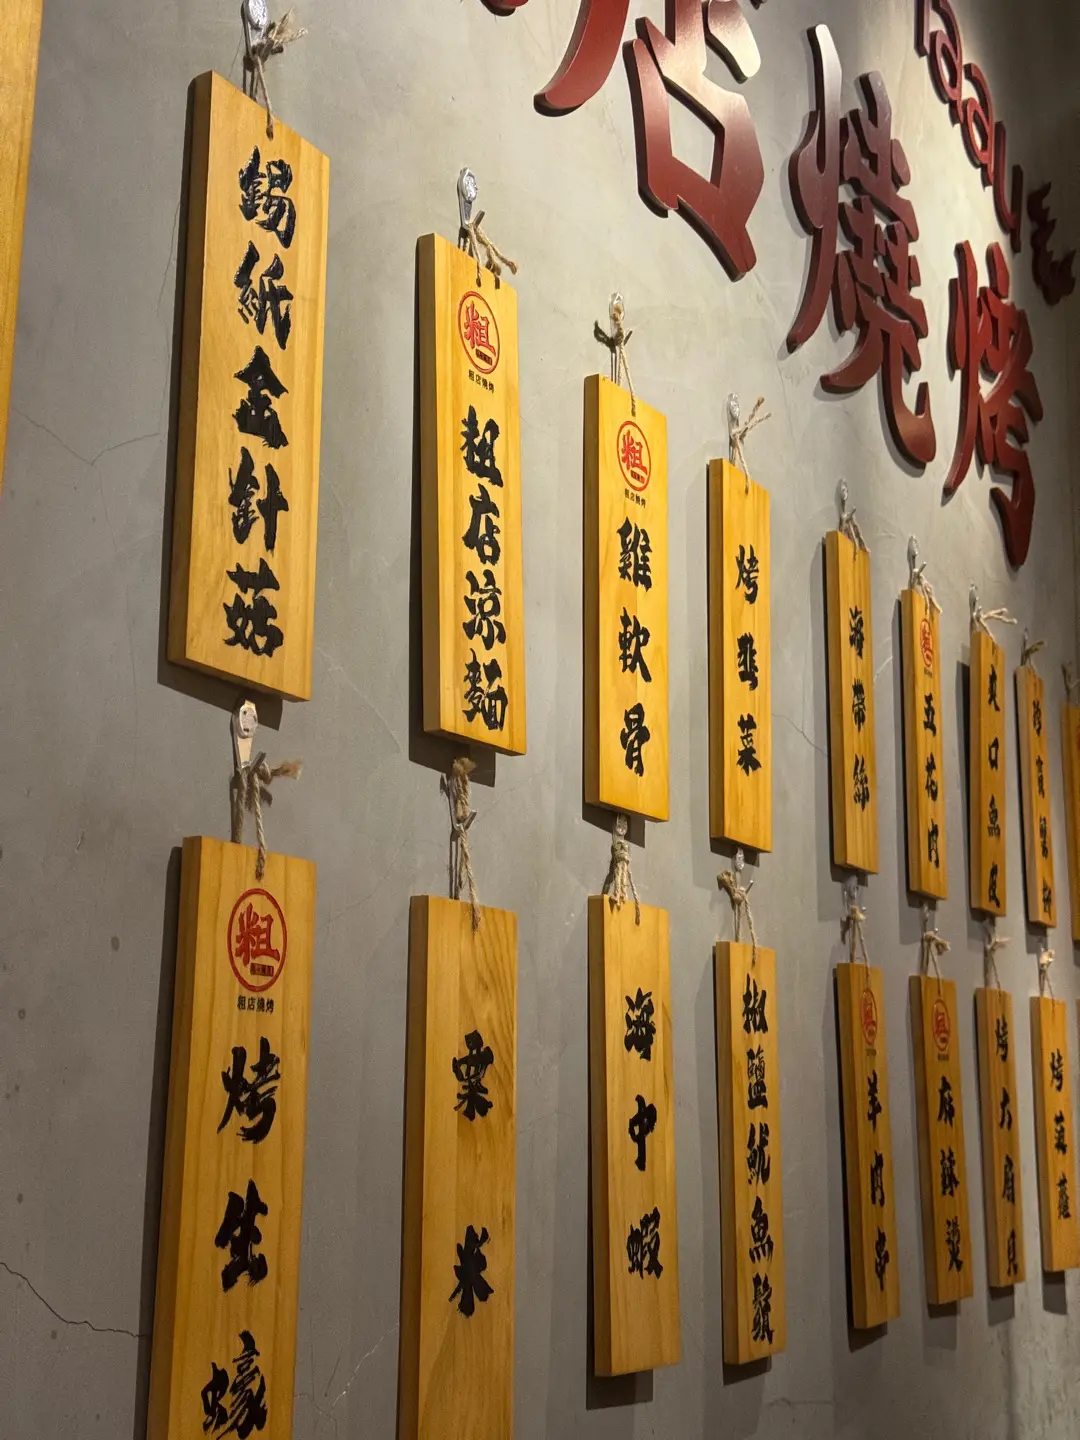 店燒烤
錫紙金針菇
粗
粗店燒烤
粗店涼麵
粗
粗店燒烤
雞軟骨
烤韭菜
海帶絲
粗
五花肉
爽口魚皮
粗
粗店燒烤
烤生蠔
粟米
海中蝦
椒鹽魷魚鬚
粗
羊肉串
粗
麻辣燙
烤大扇貝
烤菠蘿